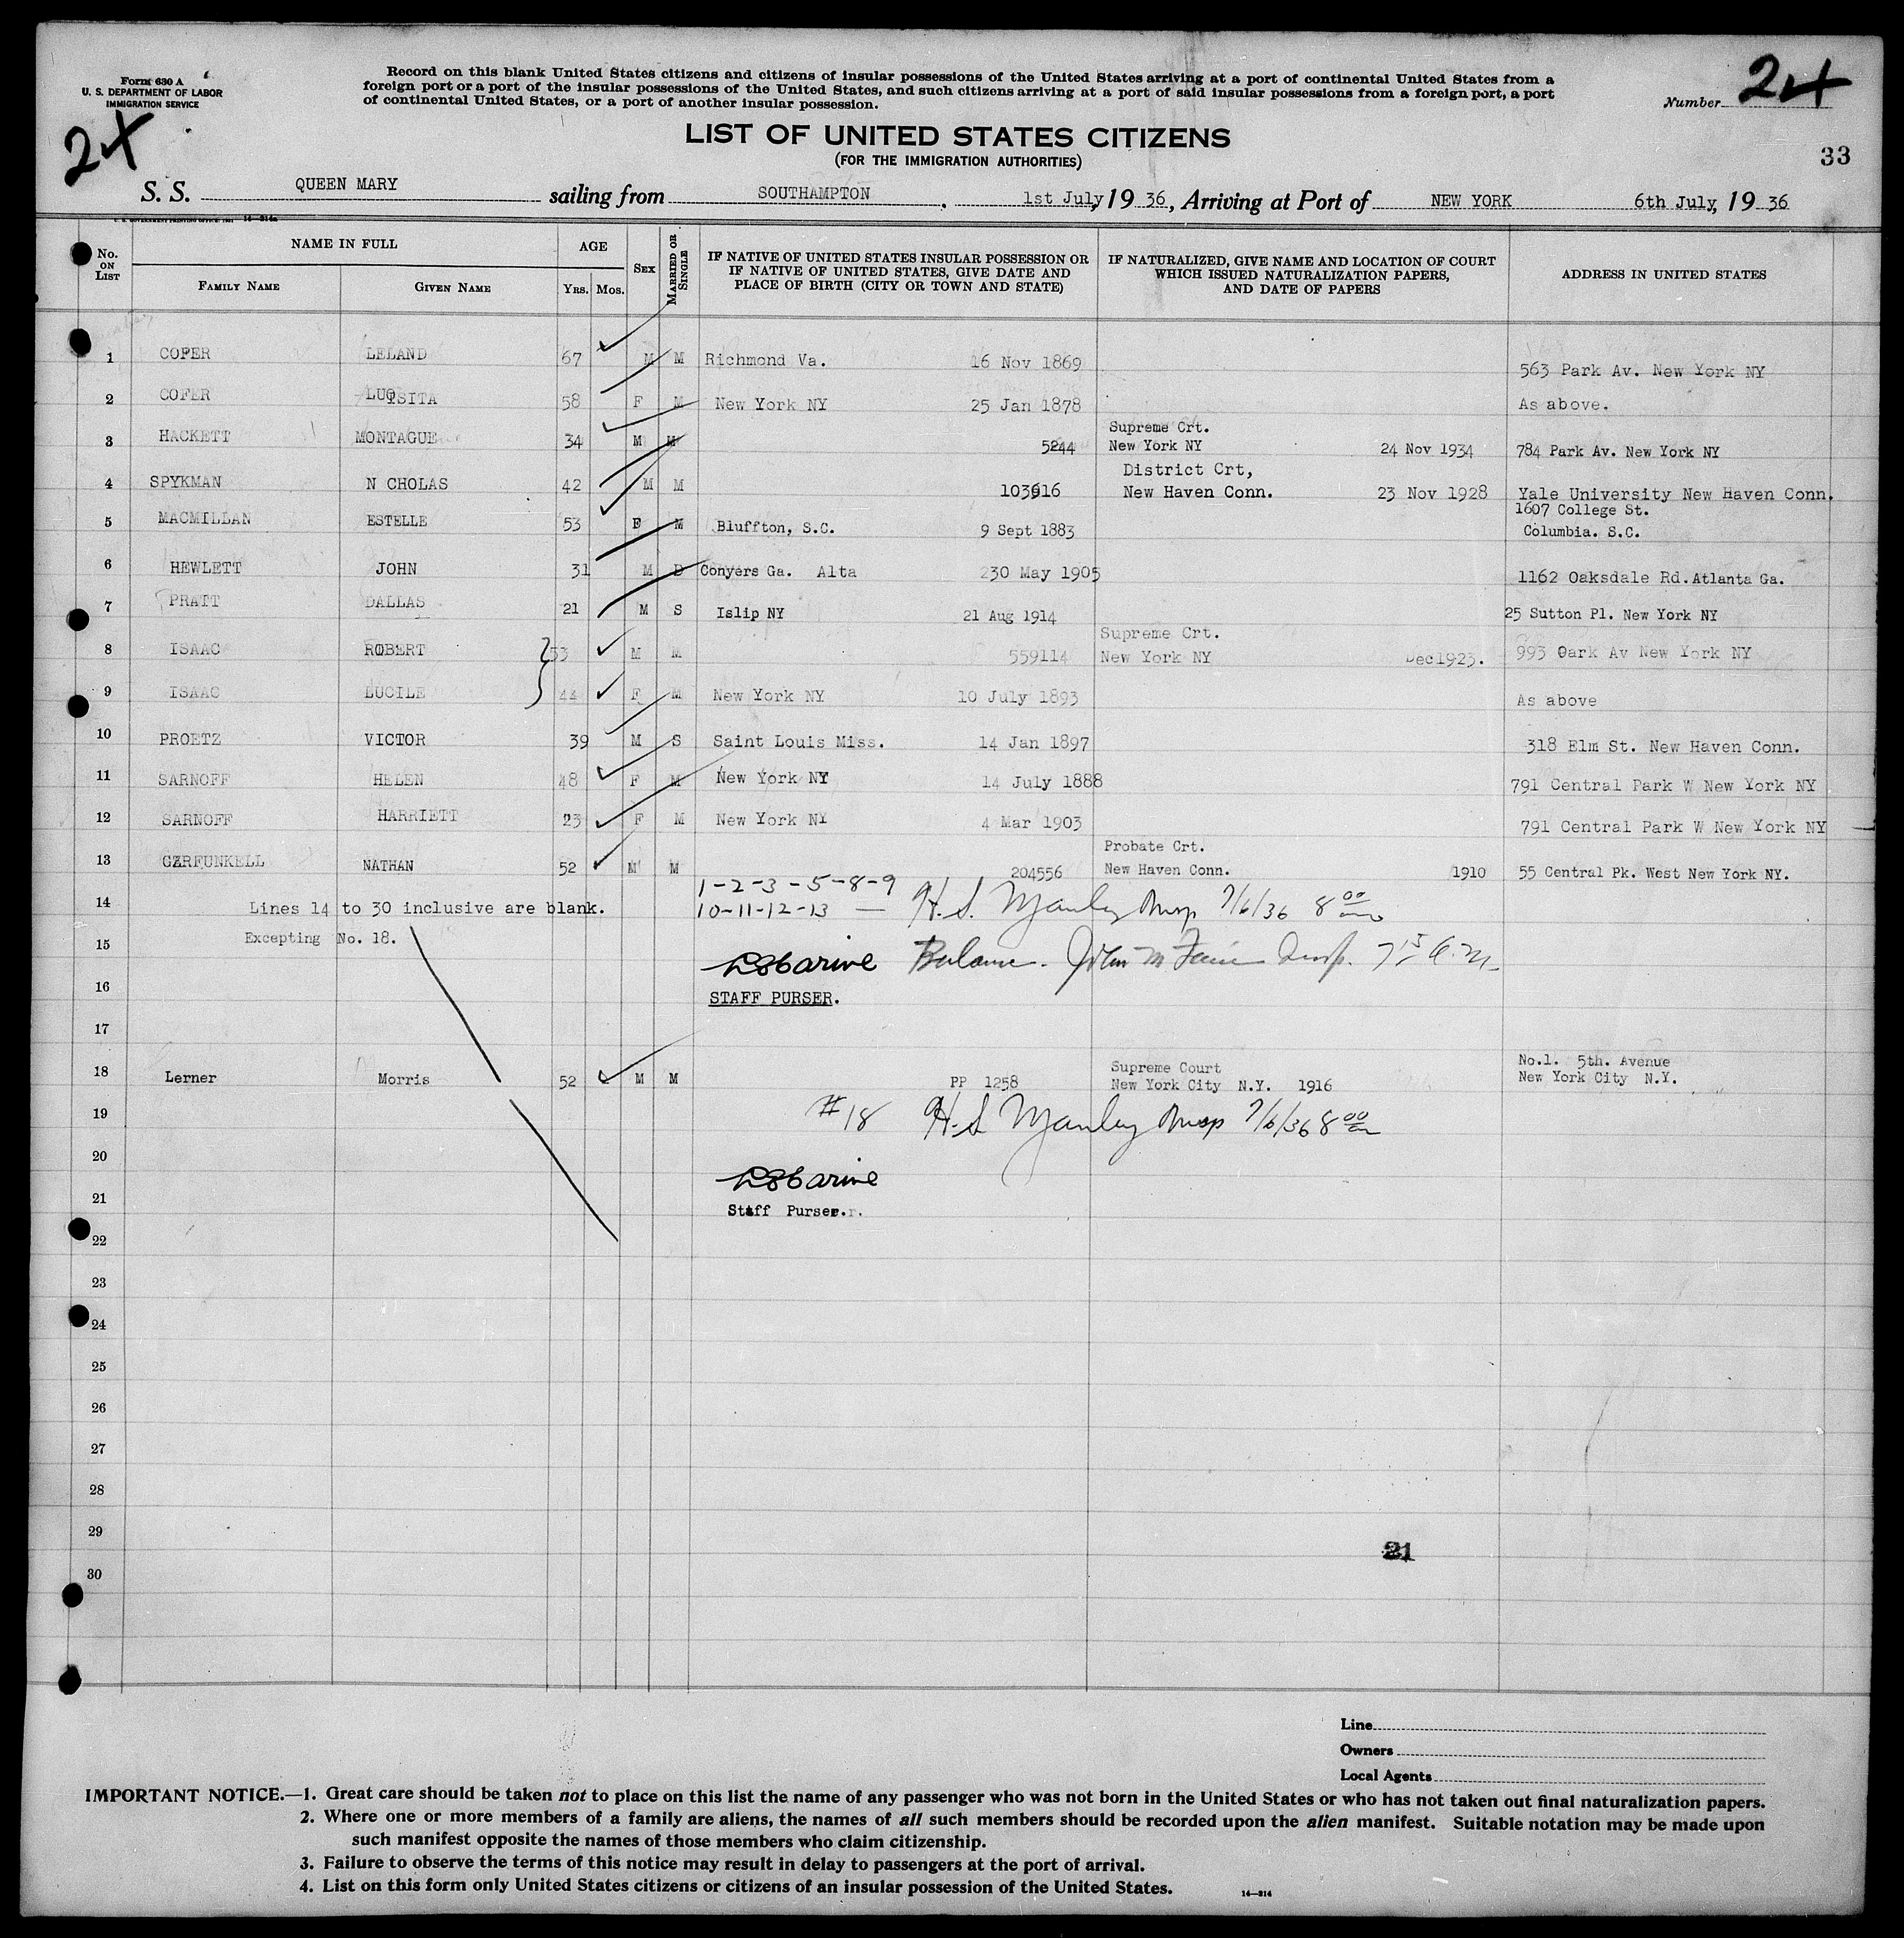 Form 630 A
U. S. DEPARTMENT OF LABOR
IMMIGRATION SERVICE
Record on this blank United States citizens and citizens of insular possessions of the United States arriving at a port of continental United States from a
foreign port or a port of the insular possessions of the United States, and such citizens arriving at a port of said insular possessions from a foreign port, a port
of continental United States, or a port of another insular possession.
Number 24
24
LIST OF UNITED STATES CITIZENS
(FOR THE IMMIGRATION AUTHORITIES)
33
S. S. QUEEN MARY sailing from SOUTHAMPTON, 1st July, 19 36, Arriving at Port of NEW YORK 6th July, 19 36
No. ON LIST NAME IN FULL AGE SEX MARRIED OR SINGLE IF NATIVE OF UNITED STATES INSULAR POSSESSION OR IF NATIVE OF UNITED STATES, GIVE DATE AND PLACE OF BIRTH (CITY OR TOWN AND STATE) IF NATURALIZED, GIVE NAME AND LOCATION OF COURT WHICH ISSUED NATURALIZATION PAPERS, AND DATE OF PAPERS ADDRESS IN UNITED STATES
FAMILY NAME GIVEN NAME YRS. MOS.
1 COFER LELAND 67 M M Richmond Va. 16 Nov 1869 563 Park Av. New York NY
2 COFER LUISITA 58 F M New York NY 25 Jan 1878 As above.
3 HACKETT MONTAGUE 34 M M 5244 Supreme Crt. New York NY 24 Nov 1934 784 Park Av. New York NY
4 SPYKMAN N CHOLAS 42 M M 103616 District Crt, New Haven Conn. 23 Nov 1928 Yale University New Haven Conn.
5 MACMILLAN ESTELLE 53 F M Bluffton, S.C. 9 Sept 1883 1607 College St. Columbia. S.C.
6 HEWLETT JOHN 31 M D Conyers Ga. Alta 230 May 1905 1162 Oaksdale Rd. Atlanta Ga.
7 PRATT DALLAS 21 M S Islip NY 21 Aug 1914 25 Sutton Pl. New York NY
8 ISAAC ROBERT 53 M M 559114 Supreme Crt. New York NY Dec 1923. 993 Oark Av New York NY
9 ISAAC LUCILE 44 F M New York NY 10 July 1893 As above
10 PROETZ VICTOR 39 M S Saint Louis Miss. 14 Jan 1897 318 Elm St. New Haven Conn.
11 SARNOFF HELEN 48 F M New York NY 14 July 1888 791 Central Park W New York NY
12 SARNOFF HARRIETT 23 F M New York NY 4 Mar 1903 791 Central Park W New York NY
13 GARFUNKELL NATHAN 52 M M 204556 Probate Crt. New Haven Conn. 1910 55 Central Pk. West New York NY.
1-2-3-5-8-9
14 Lines 14 to 30 inclusive are blank. 10-11-12-13 — H. S. Manley Insp 7/6/36 8 00
15 Excepting No. 18.
Balance. John M Insp. 7 15 A.M.
16 STAFF PURSER.
17
18 Lerner Morris 52 M M PP 1258 Supreme Court New York City N.Y. 1916 No.1. 5th. Avenue New York City N.Y.
19 #18 H. S Manley Insp 7/6/36 8 00
20
21 Staff Purser.
22
23
24
25
26
27
28
29
21
30
Line
Owners
Local Agents
IMPORTANT NOTICE.—1. Great care should be taken not to place on this list the name of any passenger who was not born in the United States or who has not taken out final naturalization papers.
2. Where one or more members of a family are aliens, the names of all such members should be recorded upon the alien manifest. Suitable notation may be made upon
such manifest opposite the names of those members who claim citizenship.
3. Failure to observe the terms of this notice may result in delay to passengers at the port of arrival.
4. List on this form only United States citizens or citizens of an insular possession of the United States.
14—214